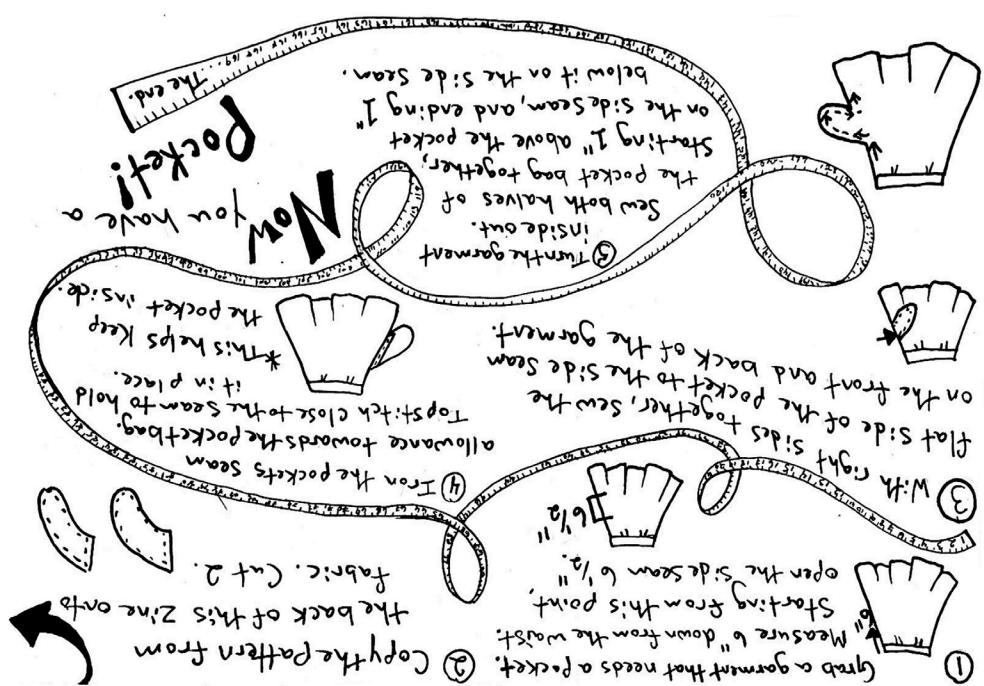 ① Grab a garment that needs a pocket.
Measure 6" down from the waist.
Starting from this point,
open the side seam 6 ½".
6"
6 ½"
② Copy the Pattern from
the back of this Zine onto
fabric. Cut 2.
③ With right sides together, sew the
flat side of the pocket to the side seam
on the front and back of the garment.
④ Iron the pockets seam
allowance towards the pocket bag.
Topstitch close to the seam to hold
it in place.
*This helps keep
the pocket inside.
⑤ Turn the garment
inside out.
Sew both halves of
the pocket bag together,
Starting 1" above the pocket
on the side seam, and ending 1"
below it on the side seam.
Now you have a
Pocket!
The end.